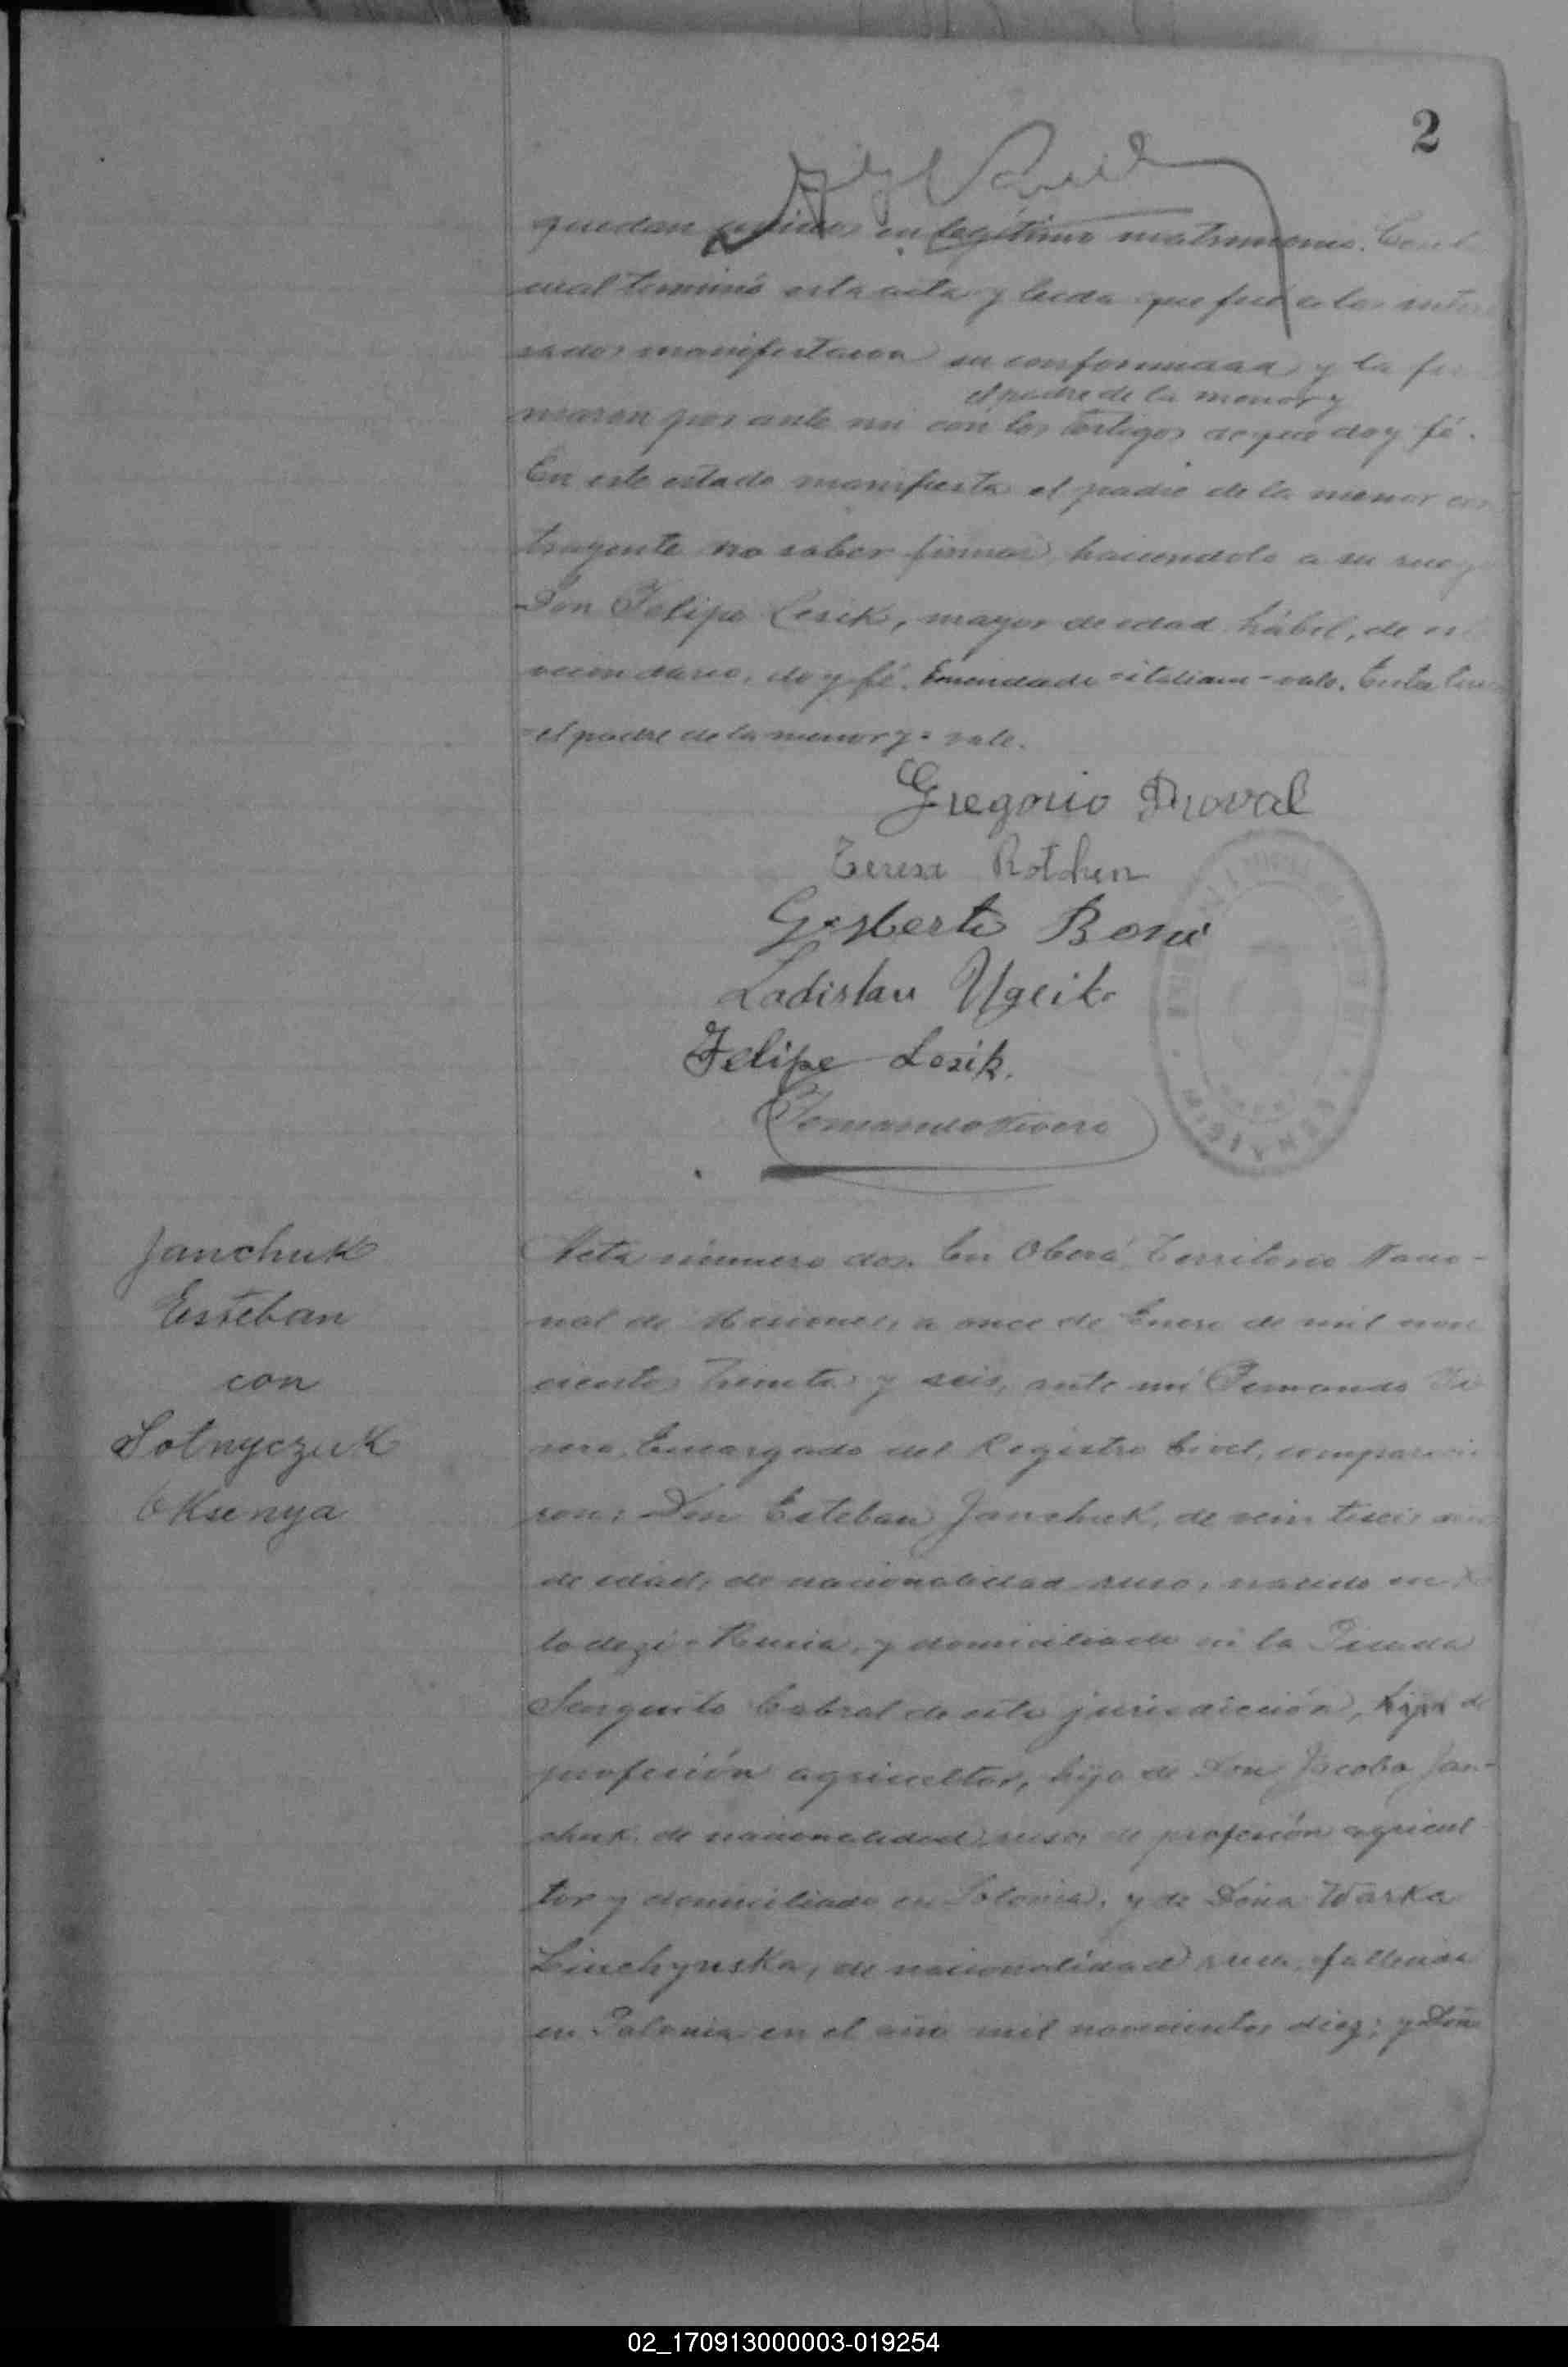 2
quedan unidos en legítimo matrimonio. Con lo
cual terminó esta acta y leida que fué a los intere
sados manifestaron su conformidad y la fir
el padre de la menor y
maron por ante mi con los testigos de que doy fé.
En este estado manifiesta el padre de la menor con
trayente no saber firmar, haciendolo a su ruego
Don Felipe Lesik, mayor de edad, hábil, de este
vecindario, doy fé. Enmendado=italiana=vale. Entre lineas
=el padre de la menor y= vale.
Gregorio
Teresa Rotchen
Gisberto Boni
Ladislau
Felipe Lesik.
Janchuk
Esteban
con
Sotnyczuk
Oksenya
Acta número dos. En Oberá, Territorio Nacio-
nal de Misiones, a once de Enero de mil nove
cientos treinta y seis, ante mí Fernando Ri
vero, Encargado del Registro Civil, comparecie
ron: Don Esteban Janchuk, de veintiseis años
de edad, de nacionalidad ruso, nacido en
todezi-Rusia, y domiciliado en la Picada
Sargento Cabral de esta jurisdicción, hijo de
profesión agricultor, hijo de Don Jacobo Jan-
chuk, de nacionalidad ruso, de profesión agricul-
tor y domiciliado en Polonia, y de Doña Warka
Linchynska, de nacionalidad rusa, fallecida
en Polonia en el año mil novecientos diez; y Doña
02_170913000003-019254